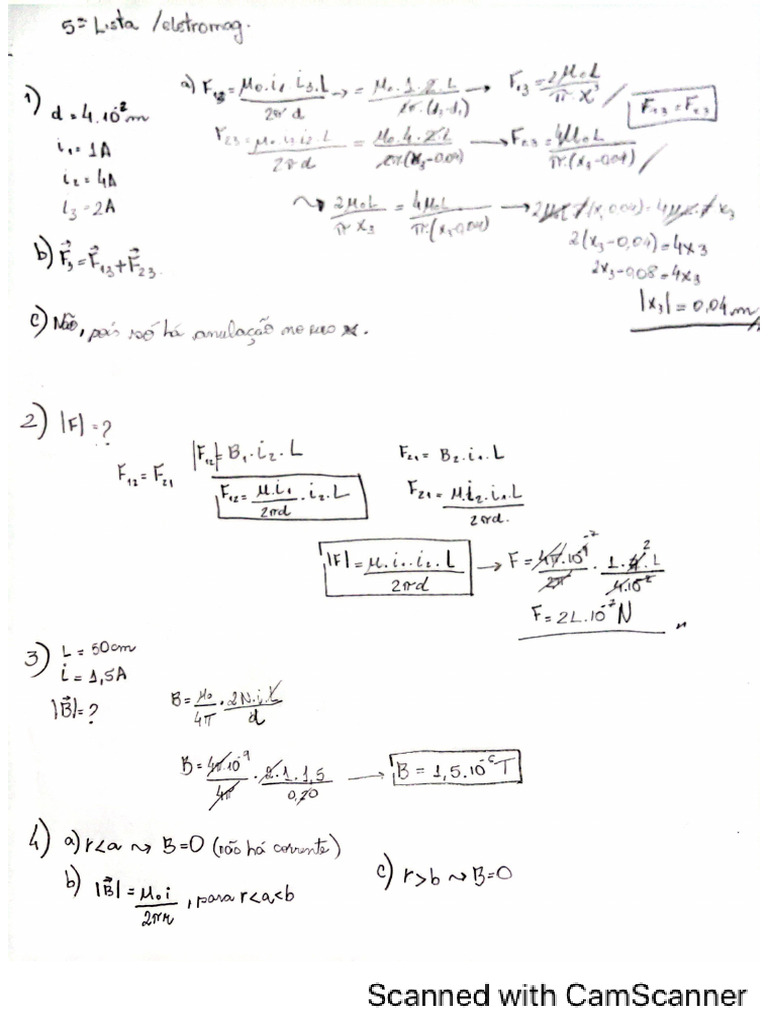 5ª Lista /eletromag.
1) d = 4.10⁻²m
i₁ = 1A
i₂ = 4A
i₃ = 2A
a) F₁₃ = μ₀.i₁ i₃.L / 2π d → = μ₀.1.2.L / 2π.(d₂-d₁) → F₁₃ = 2μ₀L / π X³ / F₁₃ = F₂₃
F₂₃ = μ₀.i₁i₂.L / 2π d = μ₀.4.2.L / 2π(x₃-0,04) → F₂₃ = 4μ₀L / π.(x₃-0,04) /
~> 2μ₀L / π x₃ = 4μ₀L / π.(x₃-0,04) → 2μ₀L(x₃-0,04) = 4μ₀L x₃
2(x₃-0,04) = 4x₃
2x₃-0,08 = 4x₃
|x₃| = 0,04m
b) F⃗₃ = F⃗₁₃ + F⃗₂₃
c) Não, pois só há anulação no eixo x.
2) |F| = ?
F₁₂ = F₂₁
|F₁₂| = B₁.i₂.L
F₂₁ = B₂.i₁.L
F₁₂ = μ.i₁ / 2πd . i₂.L
F₂₁ = μ.i₂.i₁.L / 2πd.
|F| = μ.i₁.i₂.L / 2πd → F = 4π.10⁻⁷ / 2π . 1.4.L / 4.10⁻²
F = 2L.10⁻⁷ N
3) L = 50cm
i = 1,5A
|B⃗| = ?
B = μ₀ / 4π . 2N.i.L / d
B = 4π.10⁻⁹ / 4π . 2.1.1,5 / 0,20 → B = 1,5.10⁻⁶T
4) a) r<a ~> B=0 (não há corrente)
b) |B⃗| = μ₀ i / 2πr , para r<a<b
c) r>b ~> B=0
Scanned with CamScanner